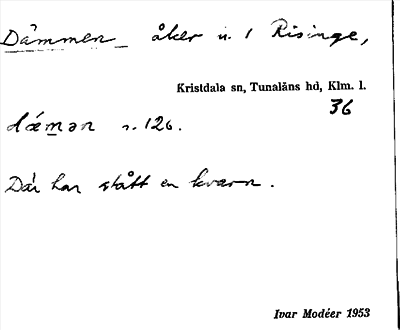 Dämmen åker n. 1 Risinge,
Kristdala sn, Tunaläns hd, Klm. l.
36
dǽmən s. 126.
Där har stått en kvarn.
Ivar Modéer 1953